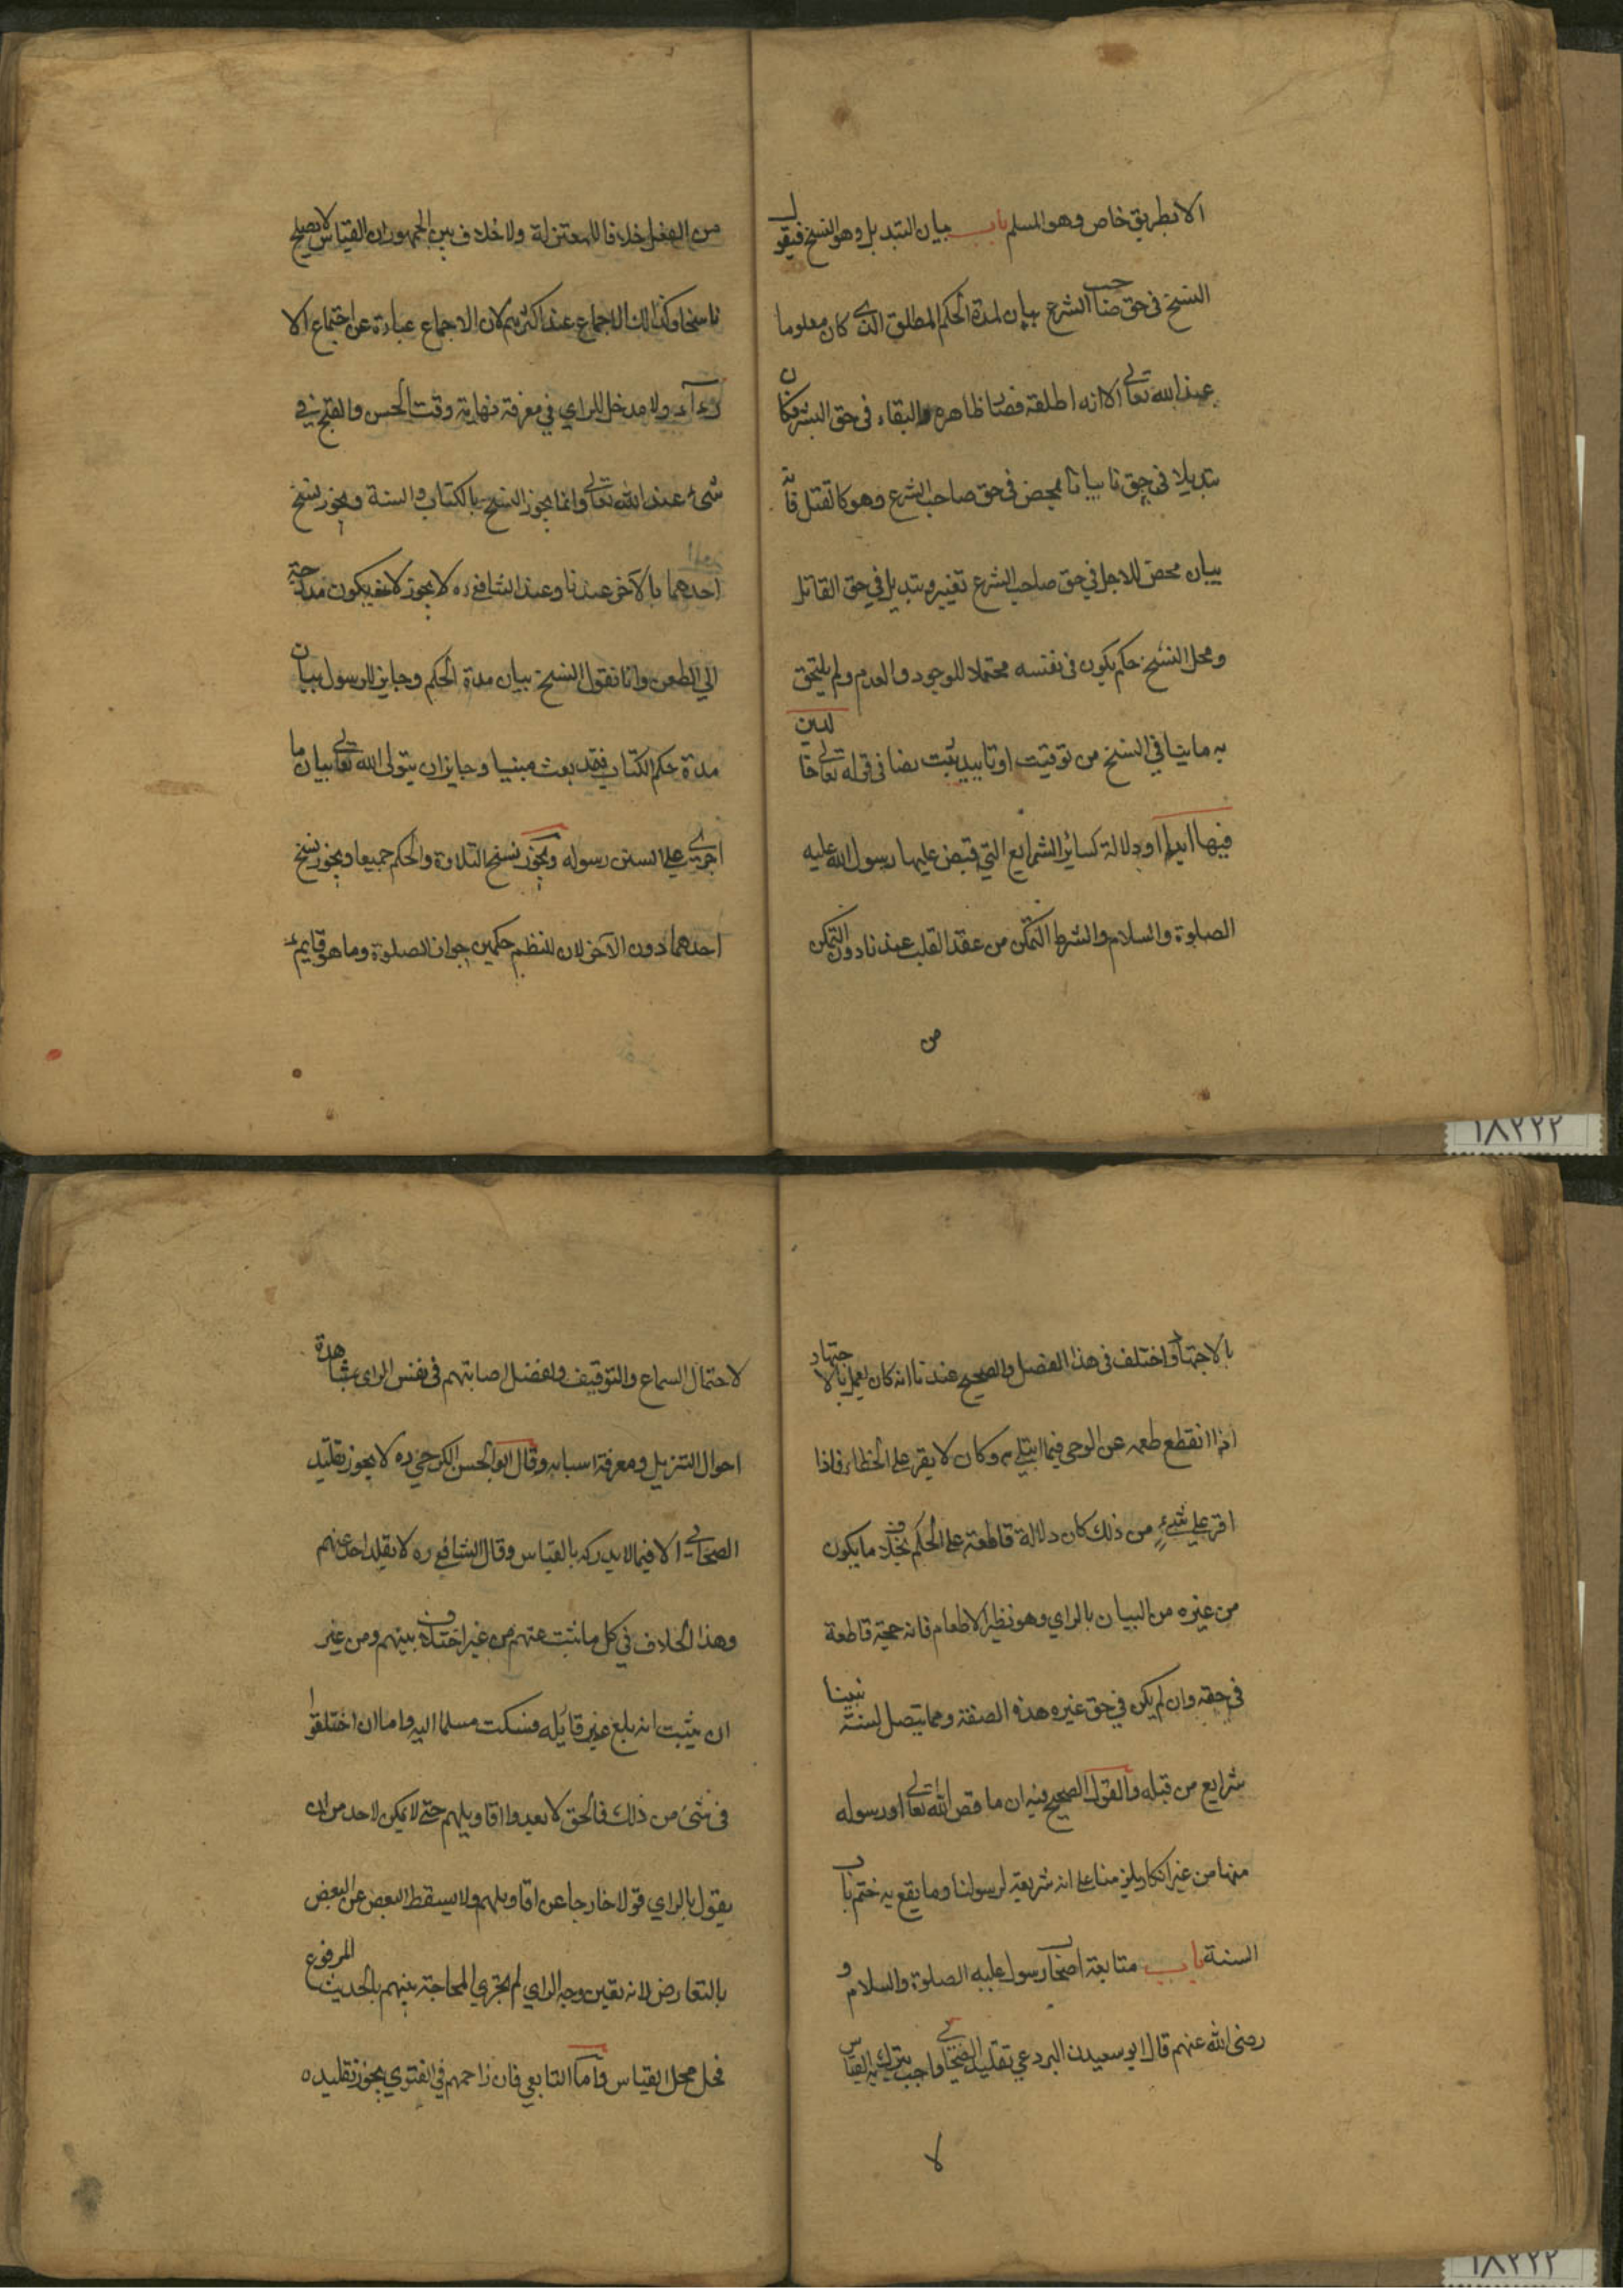 الا بطريق خاص وهو المسلم باب بيان التبديل وهو النسخ فيقول
النسخ في حق صاحب الشرع بيان لمدة الحكم المطلق الذي كان معلوما
عند الله تعالى الا انه اطلقه فصار ظاهره البقاء في حق البشر فكان
تبديلا في حقنا بيانا محض في حق صاحب الشرع وهو كالقتل فانه
بيان محض للاجل في حق صاحب الشرع تغيير وتبديل في حق القاتل
ومحل النسخ حكم يكون في نفسه محتملا للوجود والعدم ولم يلتحق
به ما ينافي النسخ من توقيت او تابيد ثبت نصا في قوله تعالى خالدين
فيها ابدا او دلالة كسائر الشرايع التي قبض عليها رسول الله عليه
الصلوة والسلام والشرط التمكن من عقد القلب عندنا دون التمكن
من
من الفعل خلافا للمعتزلة ولا خلاف بين الجمهور ان القياس لا يصلح
ناسخا وكذالك الاجماع عند اكثرهم لان الاجماع عبارة عن اجتماع الا
رآء ولا مدخل للراي في معرفة نهاية وقت الحسن والقبح في
شيء عند الله تعالى وانما يجوز النسخ بالكتاب والسنة ويجوز نسخ
احدهما بالآخر عندنا وعند الشافعي ره لا يجوز لانه يكون مدرجة
الي الطعن وانا نقول النسخ بيان مدة الحكم وجايز للرسول بيان
مدة حكم الكتاب فقد بعث مبنيا وجايز ان يتولى الله تعالى بيان ما
اجري علي السن رسوله ويجوز نسخ التلاوة والحكم جميعا ويجوز نسخ
احدهما دون الآخر لان للنظم حكمين جواز الصلوة وما هو قايم
١٨٢٢٢
بالاجتهاد واختلف في هذا الفصل والصحيح عندنا انه كان يعمل بالاجتهاد
اذا انقطع طعمه عن الوحي فيما ابتلي به وكان لا يقر علي الخطاء فاذا
اقر علي شيءٍ من ذلك كان دلالة قاطعة علي الحكم بخلاف ما يكون
من غيره من البيان بالراي وهو نظير الاطعام فانه حجة قاطعة
في حقه وان لم يكن في حق غيره هذه الصفة ومما يتصل لسنة نبينا
شرايع من قبله والقول الصحيح فيه ان ما قص الله تعالى او رسوله
منها من غير انكار يلزمنا علي انه شريعة لرسولنا وما يقع به ختم باب
السنة باب متابعة اصحاب رسول عليه الصلوة والسلام و
رضي الله عنهم قال ابو سعيدن البردعي تقليد الصحابي واجب يترك به القياس
لا
لاحتمال السماع والتوقيف ولفضل اصابتهم في نفس الراي بمشاهدة
احوال التنزيل ومعرفة اسبابه وقال ابو الحسن الكرخي ره لا يجوز تقليد
الصحابي الا فيما لا يدركه بالقياس وقال الشافعي ره لا يقلد احد منهم
وهذا الخلاف في كل ما ثبت عنهم من غير اختلاف بينهم ومن غير
ان يثبت انه بلغ غير قايله فسكت مسلما اليه واما ان اختلفوا
في شيء من ذالك فالحق لا يعدوا اقاويلهم حتي لا يمكن لاحد من ان
يقول بالراي قولا خارجا عن اقاويلهم ولا يسقط البعض عن البعض
بالتعارض لانه تعين وجه الراي لم تجري المحاجة بينهم بالحديث المرفوع
فحل محل القياس واما التابعي فان زاحمهم في الفتوي يجوز تقليده
١٨٢٢٢